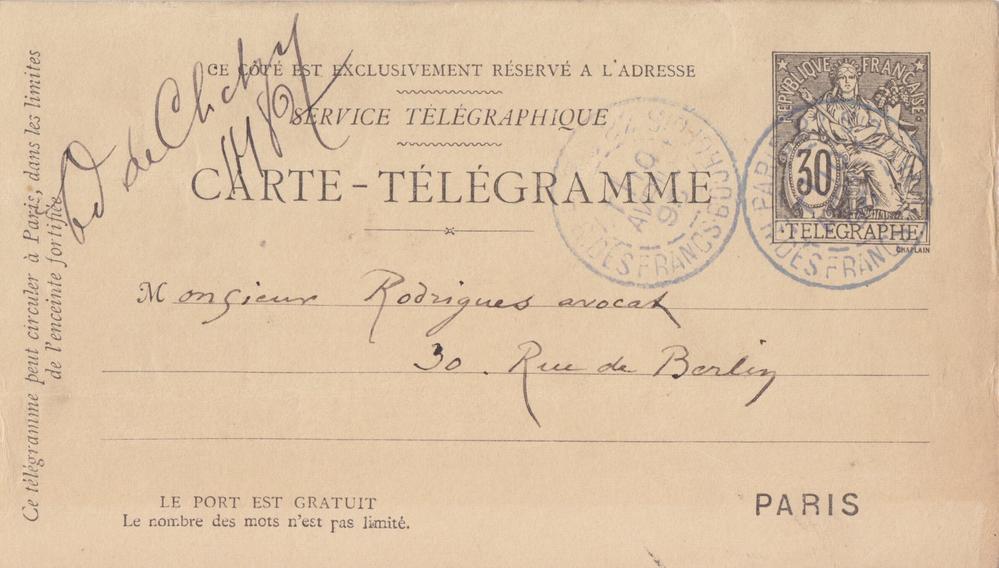 Ce télégramme peut circuler à Paris, dans les limites
de l'enceinte fortifiée
Bd de Clichy
CE CÔTÉ EST EXCLUSIVEMENT RÉSERVÉ A L'ADRESSE
SERVICE TÉLÉGRAPHIQUE
CARTE-TÉLÉGRAMME
REPUBLIQUE FRANÇAISE
30
TELEGRAPHE
CHAPLAIN
R. DES FRANCS BOURGEOIS
AVRIL
PARIS
R. DES FRANCS
Monsieur Rodrigues avocat
30. Rue de Berlin
LE PORT EST GRATUIT
Le nombre des mots n'est pas limité.
PARIS